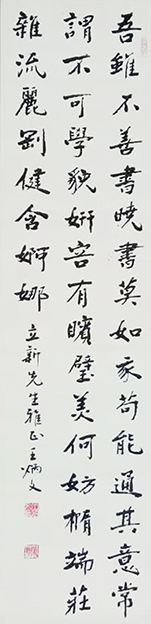 吾雖不善書曉書莫如家苟能通其意常
謂不可學貌妍容有矉璧美何妨橢端莊
雜流麗剛健含婀娜
立新先生雅正王炳文